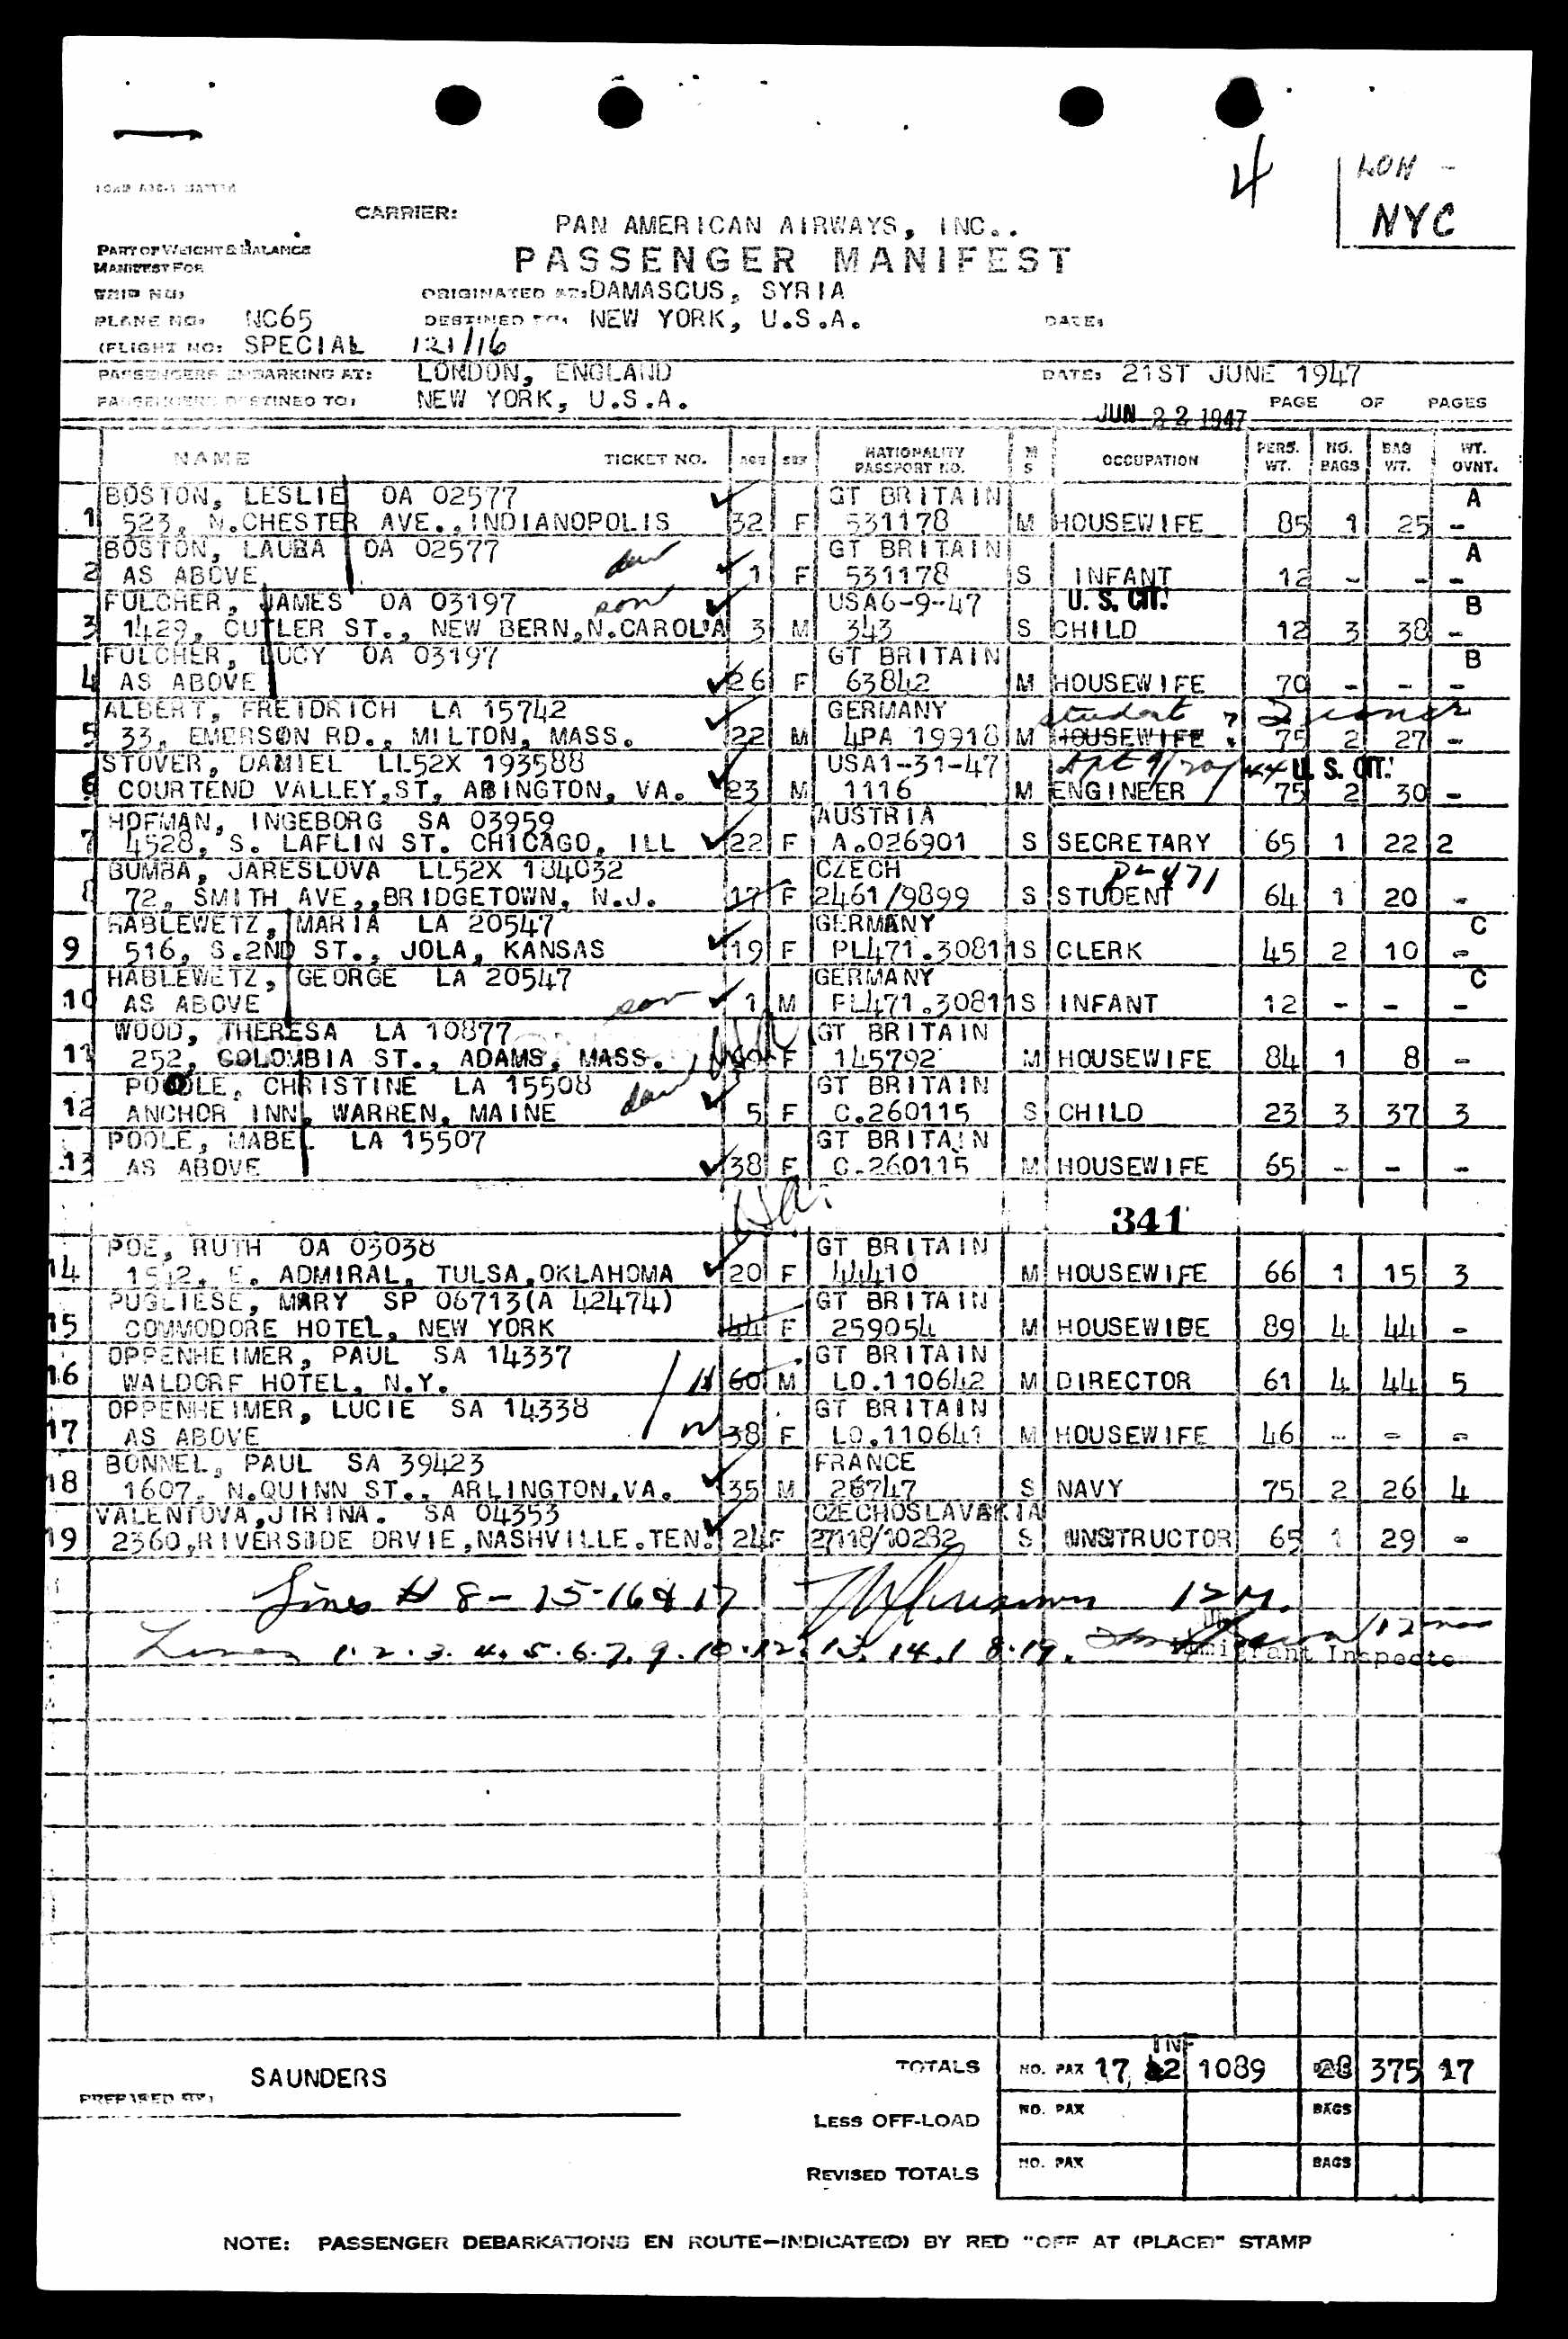 4
LON -
NYC
CARRIER:
PAN AMERICAN AIRWAYS, INC..
PART OF WEIGHT & BALANCE
MANIFEST FOR
PASSENGER MANIFEST
ORIGINATED AT: DAMASCUS, SYRIA
PLANE NO: NC65 DESTINED TO: NEW YORK, U.S.A. DATE:
(FLIGHT NO: SPECIAL 121/16
PASSENGERS EMBARKING AT: LONDON, ENGLAND DATE: 21ST JUNE 1947
PASSENGERS DESTINED TO: NEW YORK, U.S.A. JUN 22 1947 PAGE OF PAGES
NAME TICKET NO. AGE SEX NATIONALITY PASSPORT NO. M S OCCUPATION PERS. WT. NO. BAGS BAG WT. WT. OVNT.
BOSTON, LESLIE OA 02577 GT BRITAIN A
1 523, N.CHESTER AVE., INDIANOPOLIS 32 F 531178 M HOUSEWIFE 85 1 25 -
BOSTON, LAURA OA 02577 dau GT BRITAIN A
2 AS ABOVE 1 F 531178 S INFANT 12 - - -
FULCHER, JAMES OA 03197 son USA6-9-47 U. S. CIT. B
3 1429, CUTLER ST., NEW BERN,N.CAROL'A 3 M 343 S CHILD 12 3 38 -
FULCHER, LUCY OA 03197 GT BRITAIN B
4 AS ABOVE 26 F 63842 M HOUSEWIFE 70 - - -
ALBERT, FREIDRICH LA 15742 GERMANY student
5 33, EMERSON RD., MILTON, MASS. 22 M 4PA 19918 M HOUSEWIFE 75 2 27 -
STOVER, DANIEL LL52X 193588 USA1-31-47 U. S. CIT.
6 COURTEND VALLEY,ST, ABINGTON, VA. 23 M 1116 M ENGINEER 75 2 30 -
HOFMAN, INGEBORG SA 03959 AUSTRIA
7 4528, S. LAFLIN ST. CHICAGO, ILL 22 F A.026901 S SECRETARY 65 1 22 2
BUMBA, JARESLOVA LL52X 184032 CZECH PL471
8 72, SMITH AVE,,BRIDGETOWN, N.J. 17 F 2461/9899 S STUDENT 64 1 20 -
HABLEWETZ, MARIA LA 20547 GERMANY C
9 516, S.2ND ST., JOLA, KANSAS 19 F PL471.30811 S CLERK 45 2 10 -
HABLEWETZ, GEORGE LA 20547 GERMANY C
10 AS ABOVE son 1 M PL471.30811 S INFANT 12 - - -
WOOD, THERESA LA 10877 GT BRITAIN
11 252, COLOMBIA ST., ADAMS, MASS. F 145792 M HOUSEWIFE 84 1 8 -
POOLE, CHRISTINE LA 15508 GT BRITAIN
12 ANCHOR INN, WARREN, MAINE dau 5 F C.260115 S CHILD 23 3 37 3
POOLE, MABEL LA 15507 GT BRITAIN
13 AS ABOVE 38 F C.260115 M HOUSEWIFE 65 - - -
341
POE, RUTH OA 03038 GT BRITAIN
14 E. ADMIRAL, TULSA,OKLAHOMA 20 F 44410 M HOUSEWIFE 66 1 15 3
PUGLIESE, MARY SP 06713(A 42474) GT BRITAIN
15 COMMODORE HOTEL, NEW YORK 44 F 259054 M HOUSEWIBE 89 4 44 -
OPPENHEIMER, PAUL SA 14337 GT BRITAIN
16 WALDORF HOTEL, N.Y. 60 M LO.110642 M DIRECTOR 61 4 44 5
OPPENHEIMER, LUCIE SA 14338 GT BRITAIN
17 AS ABOVE 38 F LO.110641 M HOUSEWIFE 46 - - -
BONNEL, PAUL SA 39423 FRANCE
18 1607, N.QUINN ST., ARLINGTON,VA. 35 M 26747 S NAVY 75 2 26 4
VALENTOVA,JIRINA. SA 04353 CZECHOSLAVAKIA
19 2360,RIVERSIDE DRVIE,NASHVILLE.TEN. 24 F 27118/10282 S INSTRUCTOR 65 1 29 -
Lines # 8 - 15-16 & 17 12 M.
Lines 1.2.3.4.5.6.7.9.10.12.13.14.18.19.
Immigrant Inspector
INF
SAUNDERS TOTALS NO. PAX 17 2 1089 BAGS 28 375 17
PREPARED BY:
LESS OFF-LOAD NO. PAX BAGS
REVISED TOTALS NO. PAX BAGS
NOTE: PASSENGER DEBARKATIONS EN ROUTE-INDICATE(D) BY RED "OFF AT (PLACE)" STAMP